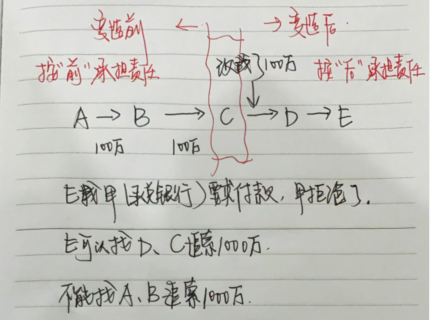 变造前 ← → 变造后
按"前"承担责任 改载了100万 按"后"承担责任
A → B → C → D → E
100万 100万
E找甲(承兑银行)要求付款,甲拒绝了.
E可以找D、C追索1000万.
不能找A、B追索1000万.